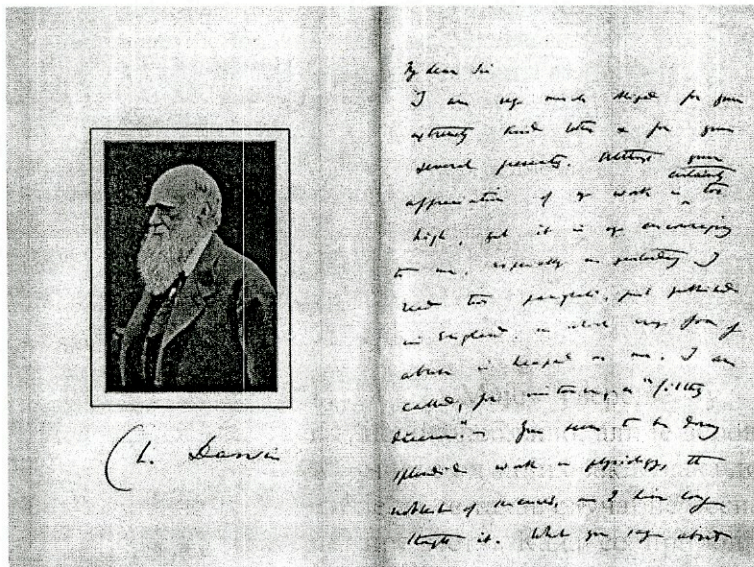 Ch. Darwin
My dear Sir
I am very much obliged for your
extremely kind letter & for your
several presents. Although your
appreciation of my work is certainly too
high, yet it is very encouraging
to me, especially as yesterday I
read two pamphlets, just published
in England, in which every form of
abuse is heaped on me. I am
called, for instance, a "filthy
dreamer". – You seem to be doing
splendid work in physiology, the
noblest of sciences, as I have long
thought it. What you say about